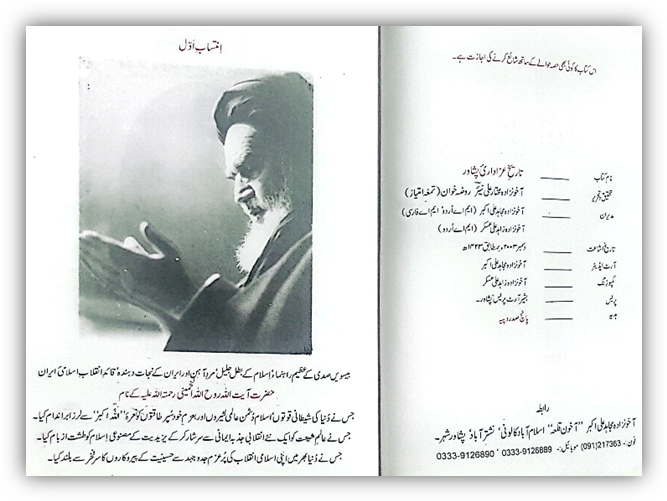 اس کتاب کا کوئی بھی حصہ حوالے کے ساتھ شائع کرنے کی اجازت ہے۔
نام کتاب ــــــ تاریخ عزاداریٔ پشاور
تحقیق و تحریر ــــــ آخونزادہ مختار علی نیّر روضہ خوان (تمغہ امتیاز)
مدیران ــــــ آخونزادہ مجاہد علی اکبر (ایم اے اُردو‘ ایم اے فارسی)
آخونزادہ زاہد علی عسکر (ایم اے اُردو)
تاریخ اشاعت ــــــ دسمبر ۲۰۰۳ء بمطابق ۱۴۲۳ھ
آرٹ ایڈیٹر ــــــ آخونزادہ مجاہد علی اکبر
کمپوزنگ ــــــ آخونزادہ زاہد علی عسکر
پریس ــــــ آرٹ پریس پشاور۔
ہدیہ ــــــ پانچ صد روپیہ
رابطہ
آخونزادہ مجاہد علی اکبر ”آخون قلعہ“ اسلام آباد کالونی‘ نشتر آباد‘ پشاور شہر۔
فون:- 217363 (091) موبائیل:- 0333-9126889 ‘ 0333-9126890
اِنتساب اوّل
بیسویں صدی کے عظیم راہنما‘ اِسلام کے بطلِ جلیل‘ مردِ آہن اور ایران کے نجات دہندہ‘ قائدِ انقلاب اِسلامیٔ ایران
حضرت آیت اللہ روح اللہ الخمینی رحمتہ اللہ علیہ کے نام
جس نے دُنیا کی شیطانی قوتوں‘ اسلام دُشمن عالمی لٹیروں اور بزعمِ خود سُپر طاقتوں کو نعرۂ ”اللہُ اکبر“ سے لرزا براندام کیا۔
جس نے عالمِ شیعت کو ایک نئے انقلابی جذبہ ایمانی سے سرشار کر کے یزیدیت کے مصنوعی اِسلام کو طشت از بام کیا۔
جس نے دُنیا بھر میں اپنی اسلامی انقلاب کی پُرعزم جدوجہد سے حسینیت کے پیروکاروں کا سر فخر سے بلند کیا۔